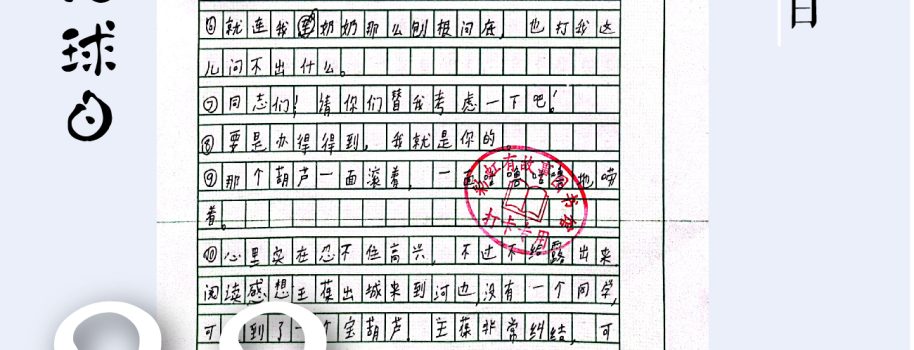 球日
日
⑥就连我奶奶那么刨根问底，也打我这
儿问不出什么。
⑦同志们！请你们替我考虑一下吧！
⑧要是办得得到，我就是你的。
⑨那个葫芦一面滚着，一面嘻嘻嘻地唠
着。
彩虹有故事图书馆
打卡专用
⑩心里实在忍不住高兴，不过不给露出来
阅读感想王葆出城来到河边，没有一个同学，
可 到了一个宝葫芦。王葆非常纠结，可